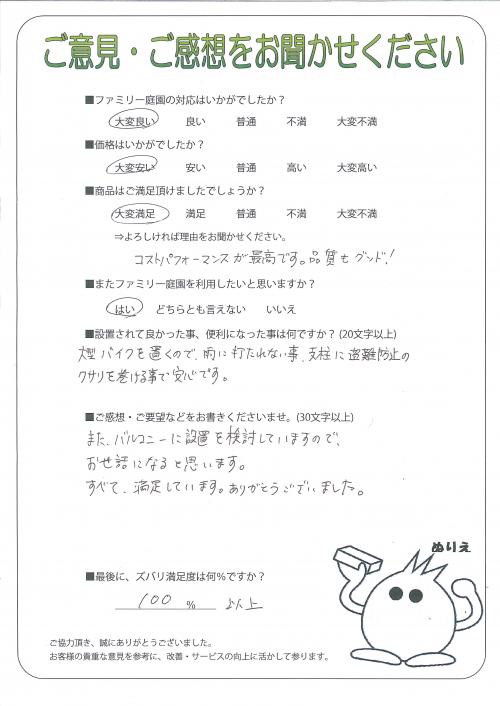 ご意見・ご感想をお聞かせください
■ファミリー庭園の対応はいかがでしたか？
大変良い 良い 普通 不満 大変不満
■価格はいかがでしたか？
大変安い 安い 普通 高い 大変高い
■商品はご満足頂けましたでしょうか？
大変満足 満足 普通 不満 大変不満
⇒よろしければ理由をお聞かせください。
コストパフォーマンスが最高です。品質もグッド！
■またファミリー庭園を利用したいと思いますか？
はい どちらとも言えない いいえ
■設置されて良かった事、便利になった事は何ですか？(20文字以上)
大型バイクを置くので、雨に打たれない事、支柱に盗難防止の
クサリを巻ける事で安心です。
■ご感想・ご要望などをお書きくださいませ。(30文字以上)
また、バルコニーに設置を検討していますので、
お世話になると思います。
すべて、満足しています。ありがとうございました。
ぬりえ
■最後に、ズバリ満足度は何％ですか？
100 ％ 以上
ご協力頂き、誠にありがとうございました。
お客様の貴重な意見を参考に、改善・サービスの向上に活かして参ります。